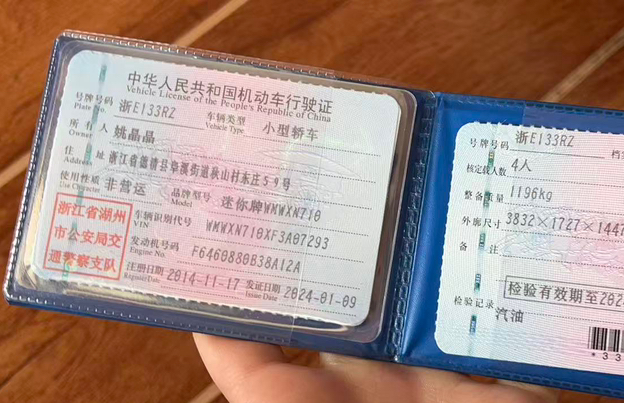 中华人民共和国机动车行驶证
Vehicle License of the People's Republic of China
号牌号码 浙E133RZ 车辆类型 小型轿车
Plate No. Vehicle Type
所有人 姚晶晶
Owner
住址 浙江省德清县阜溪街道狄山村木庄59号
Address
使用性质 非营运 品牌型号 迷你牌WMWXN710
Use Character Model
浙江省湖州
市公安局交
通警察支队
车辆识别代号 WMWXN710XF3A07293
VIN
发动机号码 F6460880B38A12A
Engine No.
注册日期 2014-11-17 发证日期 2024-01-09
Register Date Issue Date
号牌号码 浙E133RZ
核定载人数 4人
整备质量 1196kg
外廓尺寸 3832×1727×1447
备注
检验有效期至202
检验记录
汽油
*33